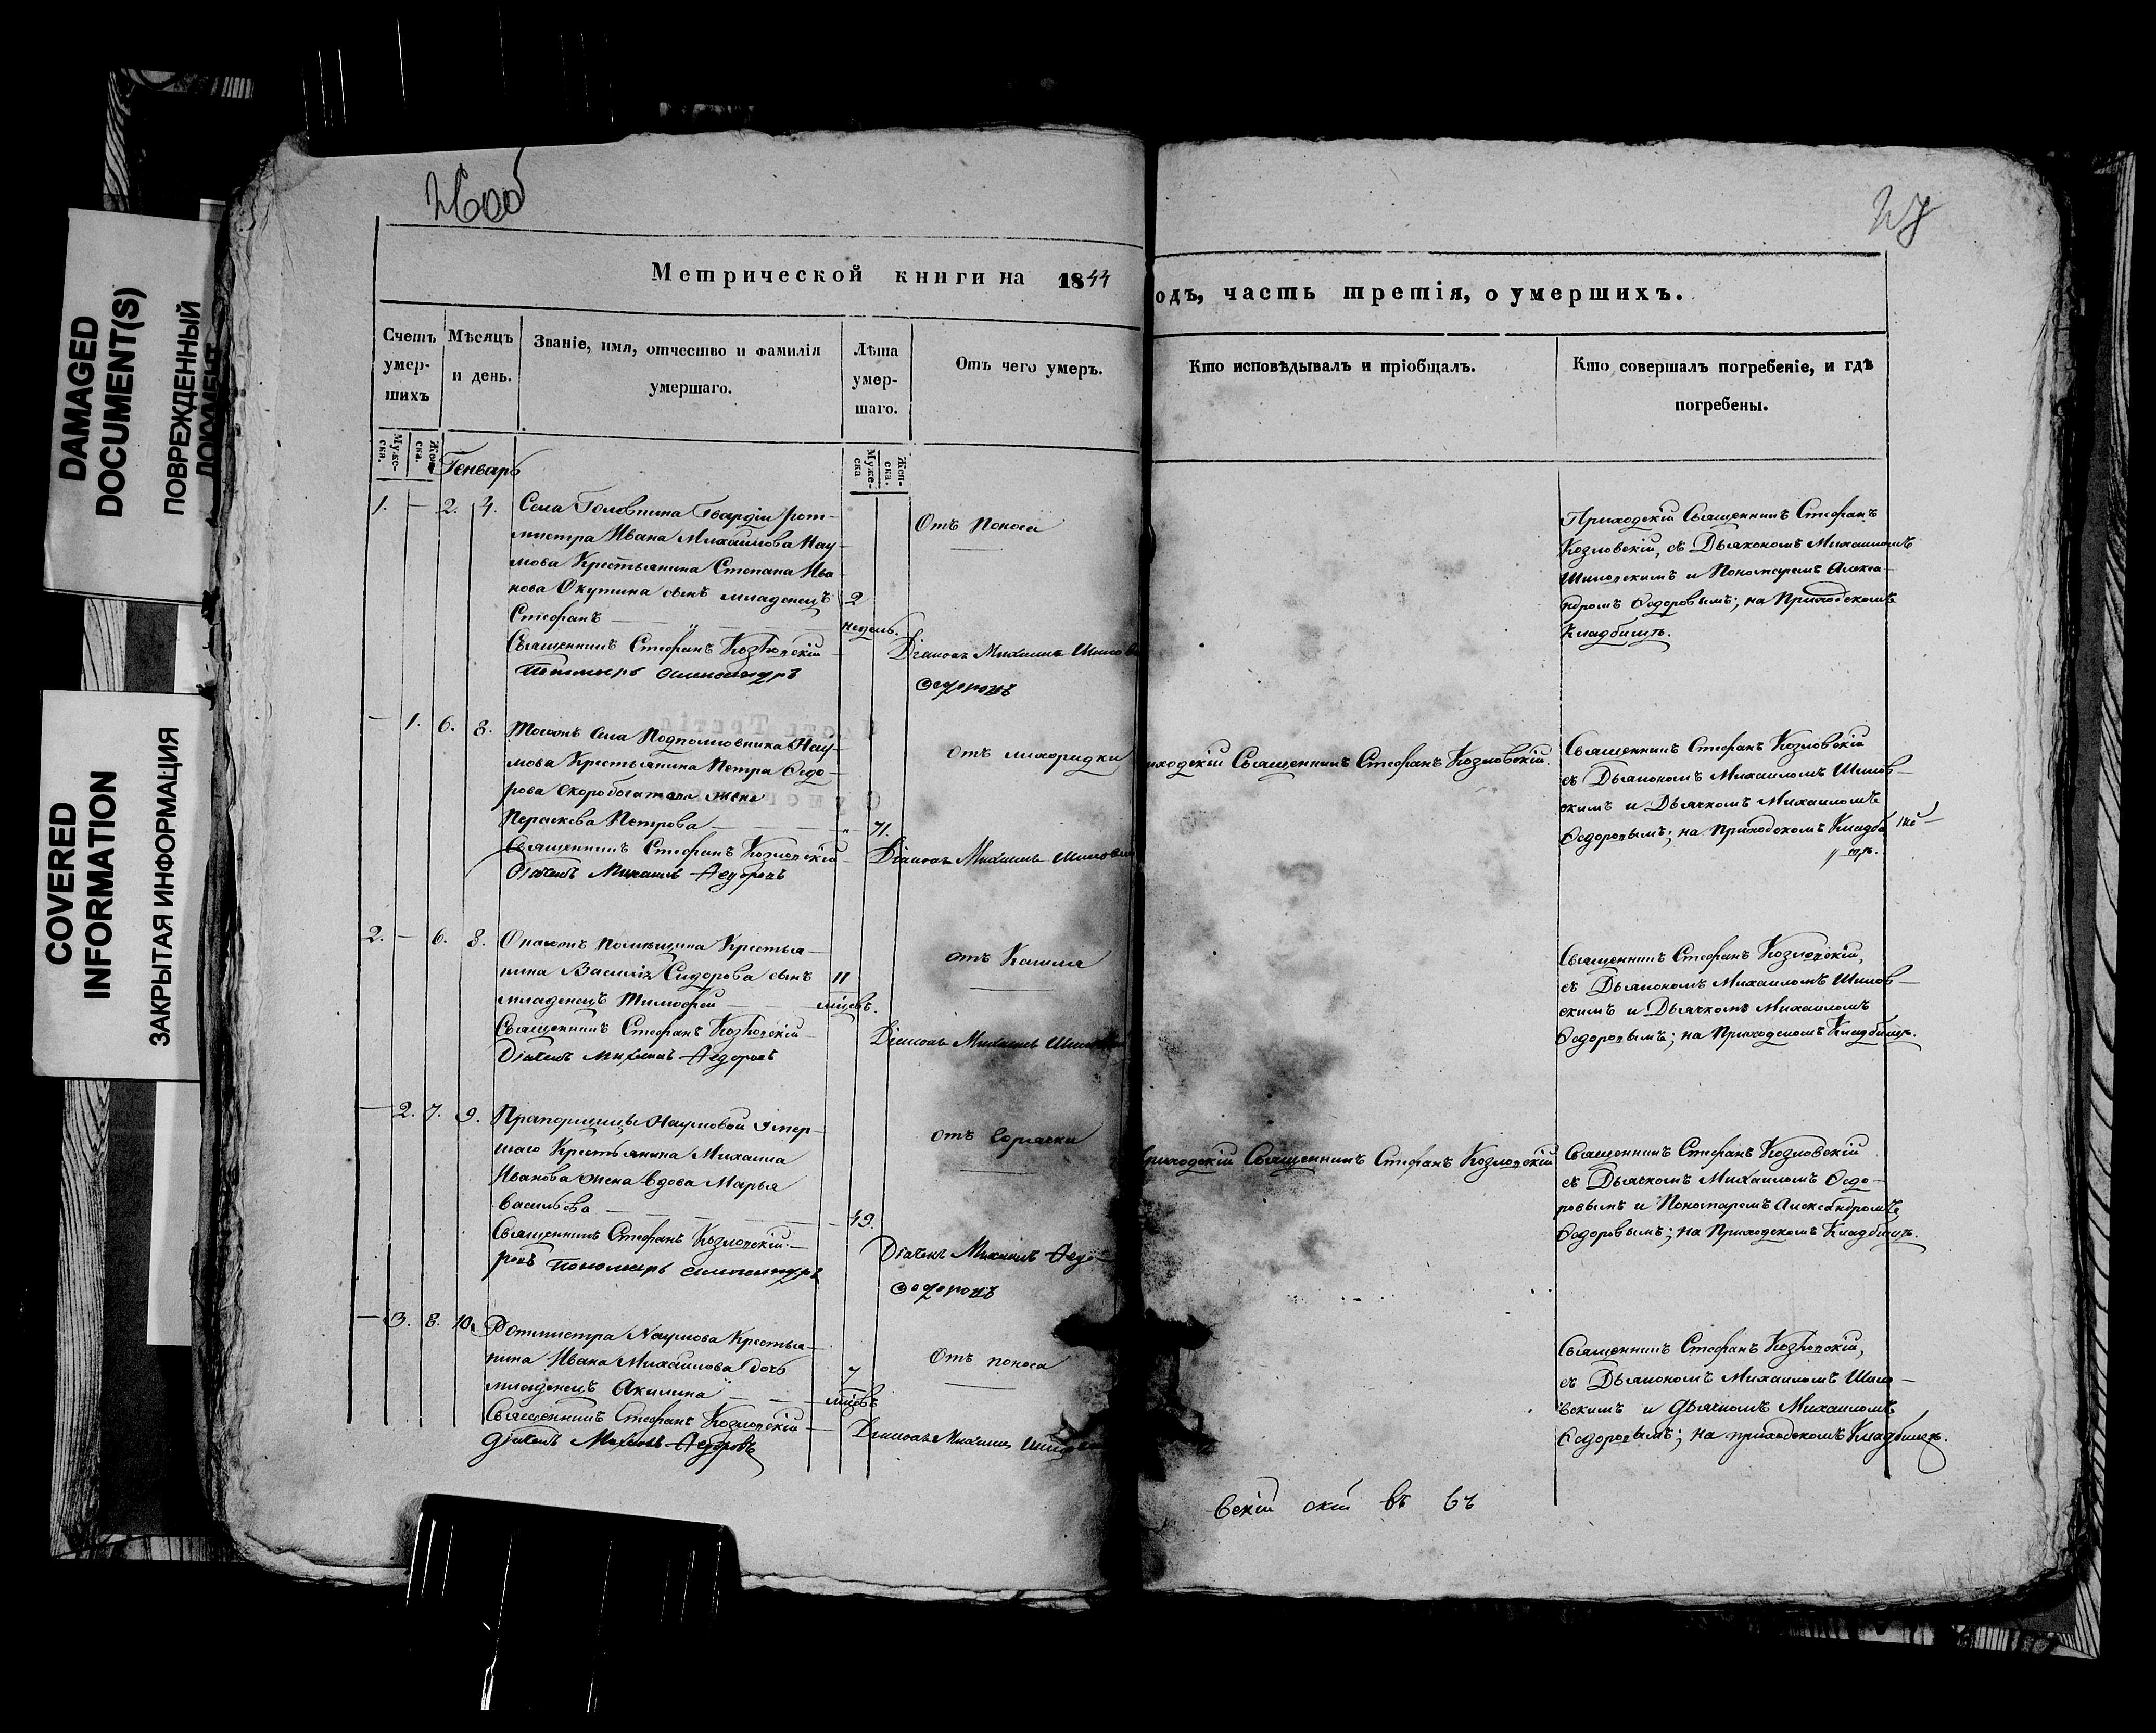 DAMAGED
DOCUMENT(S)
ПОВРЕЖДЕННЫЙ
ДОКУМЕНТ
COVERED
INFORMATION
ЗАКРЫТАЯ ИНФОРМАЦИЯ
26об
27
Метрической книги на 1844
одъ, часть третія, о умершихъ.
Счетъ умер-шихъ
Мужеска.
Женска.
Мѣсяцъ и день.
Званіе, имя, отчество и фамилія умершаго.
Лѣта умер-шаго.
Мужеска
Женска.
Отъ чего умеръ.
Кто исповѣдывалъ и пріобщалъ.
Кто совершалъ погребеніе, и гдѣ погребены.
Генварь
1. — 2. 4.
Села Головнина Гвардіи рот-
мистра Ивана Михайлова Нау-
мова Крестьянина Степана Ива-
нова Окутина сынъ младенецъ
Стефанъ
2
недель.
Отъ поноса
Священникъ Стефанъ Козловскій
Діаконъ Михаилъ Шилов
Пономарь Александръ
Федоровъ
Приходскій Священникъ Стефанъ
Козловскій, съ Дьякономъ Михаиломъ
Шиловскимъ и Пономаремъ Алекса-
ндромъ Ѳедоровымъ; на Приходскомъ
Кладбищѣ.
— 1. 6. 8.
Тогожъ Села Подполковника Нау-
мова Крестьянина Петра Ѳедо-
рова Скоробогатова жена
Параскева Петрова
71.
отъ лихорадки
иходскій Священникъ Стефанъ Козловскій.
Священникъ Стефанъ Козловскій
Діаконъ Михаилъ Шиловск
Діачекъ Михаилъ Федоровъ
Священникъ Стефанъ Козловскій
съ Дьякономъ Михаиломъ Шилов-
скимъ и Дьячкомъ Михаиломъ
Ѳедоровымъ; на Приходскомъ Кладби
щѣ.
2. — 6. 8.
Онагожъ помѣщика Крестья-
нина Василія Сидорова сынъ
младенецъ Тимофей
11
мѣсцвъ.
отъ Кашля
Священникъ Стефанъ Козловскій
Діаконъ Михаилъ Шиловск
Діачекъ Михаилъ Федоровъ
Священникъ Стефанъ Козловскій,
съ Дьякономъ Михаиломъ Шилов-
скимъ и Дьячкомъ Михаиломъ
Ѳедоровымъ; на Приходскомъ Кладбищѣ.
— 2. 7. 9.
Прапорщицы Наумовой Умер-
шаго Крестьянина Михаила
Иванова жена вдова Марья
Васильева
49.
отъ горячки
риходскій Священникъ Стефанъ Козловскій
Священникъ Стефанъ Козловскій
Діачекъ Михаилъ Федо-
ровъ Пономарь Александръ
Федоровъ
Священникъ Стефанъ Козловскій
съ Дьячкомъ Михаиломъ Ѳедо-
ровымъ и Пономаремъ Александромъ
Ѳедоровымъ; на Приходскомъ Кладбищѣ.
— 3. 8. 10.
Ротмистра Наумова Крестья-
нина Ивана Михайлова дочь
младенецъ Акилина
7
мѣсцвъ
Отъ поноса
Священникъ Стефанъ Козловскій
Діаконъ Михаилъ Шиловск
Діачекъ Михаилъ Федоровъ
Священникъ Стефанъ Козловскій,
съ Дьякономъ Михаиломъ Шило-
вскимъ и Дьячкомъ Михаиломъ
Ѳедоровымъ; на приходскомъ Кладбищѣ.
вскій скій въ въ